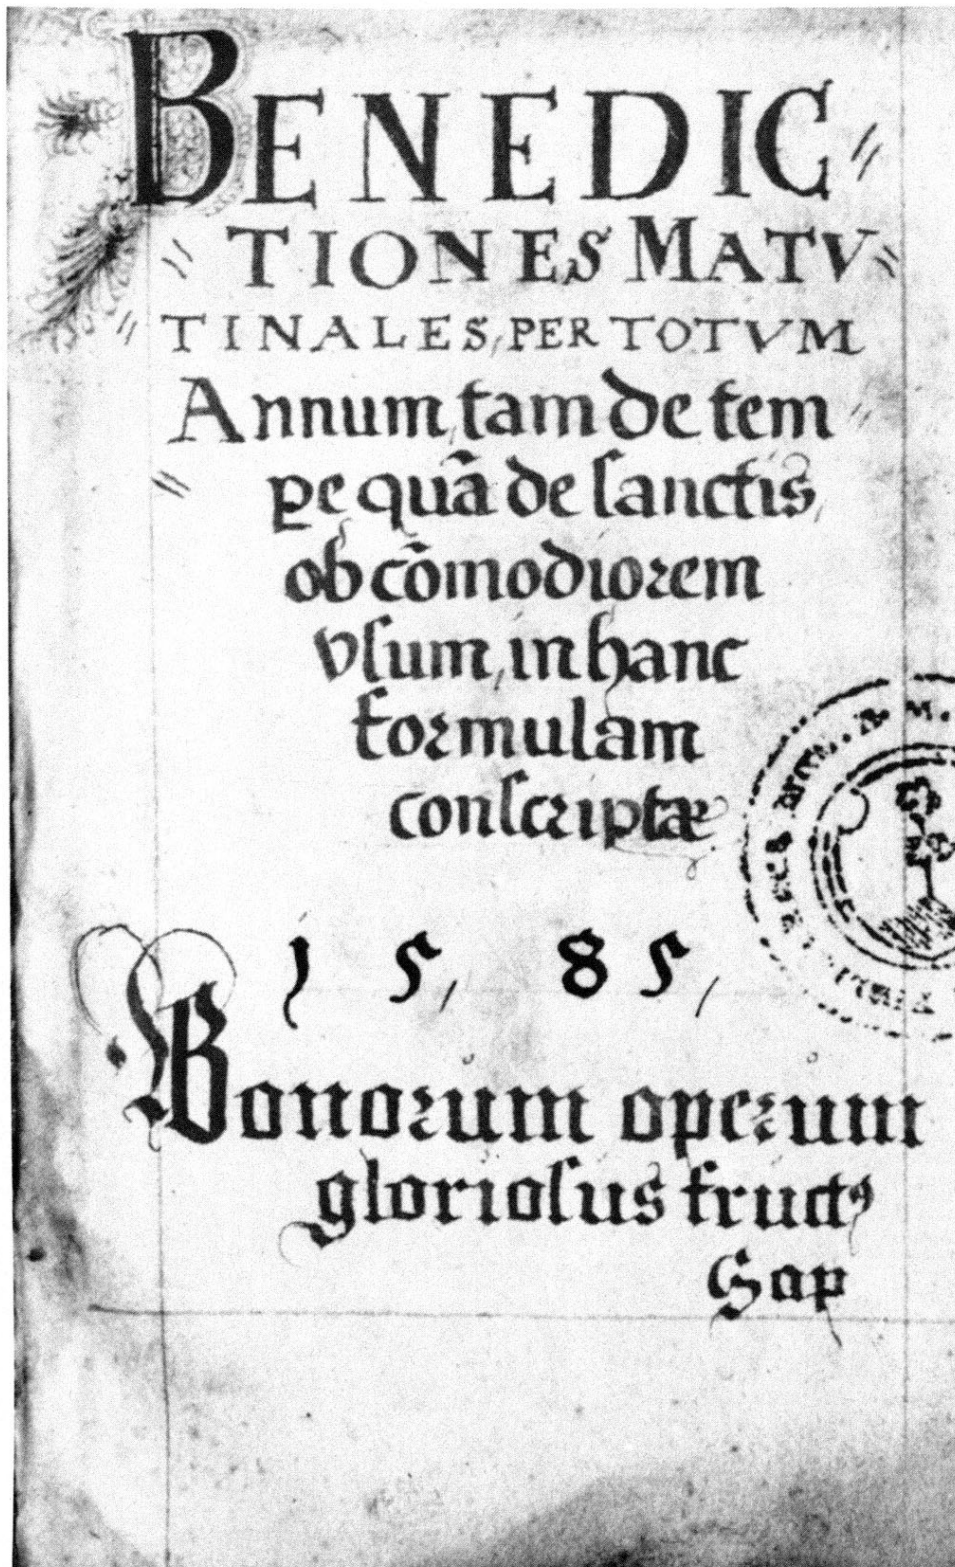 BENEDIC//
// TIONES MATV//
// TINALES, PER TOTVM
Annum, tam de tem//
// ꝑe quā de ſanctis,
ob cōmodiorem
vſum, in hanc
formulam
conſcriptæ
1 5, 8 5,
Bonorum operum
glorioſus fructꝰ
Sap